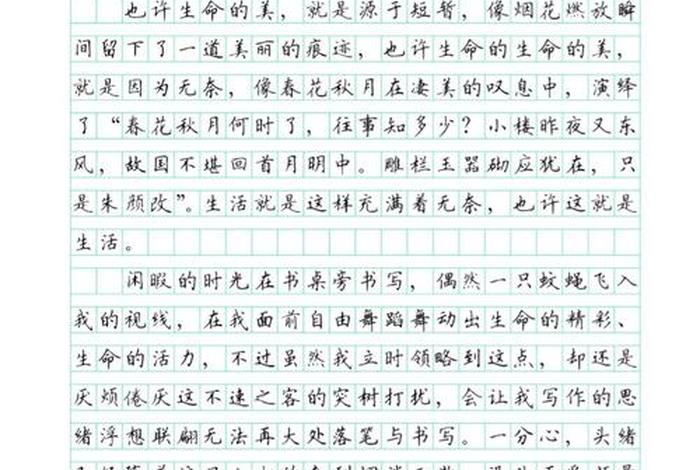 也许生命的美，就是源于短暂，像烟花燃放瞬
间留下了一道美丽的痕迹，也许生命的生命的美，
就是因为无奈，像春花秋月在凄美的叹息中，演绎
了“春花秋月何时了，往事知多少？小楼昨夜又东
风，故国不堪回首月明中。雕栏玉器砌应犹在，只
是朱颜改”。生活就是这样充满着无奈，也许这就是
生活。
闲暇的时光在书桌旁书写，偶然一只蚊蝇飞入
我的视线，在我面前自由舞蹈舞动出生命的精彩、
生命的活力，不过虽然我立时领略到这点，却还是
厌烦倦厌这不速之客的突树打扰，会让我写作的思
绪浮想联翩无法再大处落笔与书写。一分心，头绪